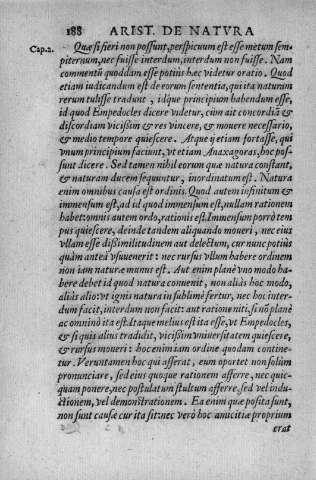 188 ARIST. DE NATVRA
Cap. 2. Quæ si fieri non possunt, perspicuum est esse motum sem-
piternum, nec fuisse interdum, interdum non fuisse. Nam
commentũ quoddam esse potiùs hæc videtur oratio. Quod
etiam iudicandum est de eorum sententia, qui ita naturam
rerum tulisse tradunt, idque principium habendum esse,
id quod Empedocles dicere videtur, cùm ait concordiã &
discordiam vicissim & res vincere, & mouere necessario,
& medio tempore quiescere. Atque ij etiam fortasse, qui
vnum principium faciunt, vt etiam Anaxagoras, hoc pos-
sunt dicere. Sed tamen nihil eorum quæ natura constant,
& naturam ducem sequuntur, inordinatum est. Natura
enim omnibus causa est ordinis. Quod autem infinitum &
immensum est, ad id quod immensum est, nullam rationem
habet: omnis autem ordo, rationis est. Immensum porrò tem
pus quiescere, deinde tandem aliquando moueri, nec eius
vllam esse dissimilitudinem aut delectum, cur nunc potiùs
quàm antea vsuuenerit: nec rursus vllum habere ordinem
non iam naturæ munus est. Aut enim planè vno modo ha-
bere debet id quod natura conuenit, non aliàs hoc modo,
aliàs alio: vt ignis natura in sublime fertur, nec hoc inter-
dum facit, interdum non facit: aut ratione niti, si nõ planè
ac omnino ita est. Itaque melius est ita esse, vt Empedocles,
& si quis alius tradidit, vicissim vniuersitatem quiescere,
& rursus moueri: hoc enim iam ordine quodam contine-
tur. Veruntamen hoc qui afferat, eum oportet non solùm
pronunciare, sed eius quoque rationem afferre, nec quic-
quam ponere, nec postulatum stultum afferre, sed vel indu-
ctionem, vel demonstrationem. Ea enim quæ posita sunt,
non sunt causæ cur ita sit: nec verò hoc amicitiæ proprium
erat